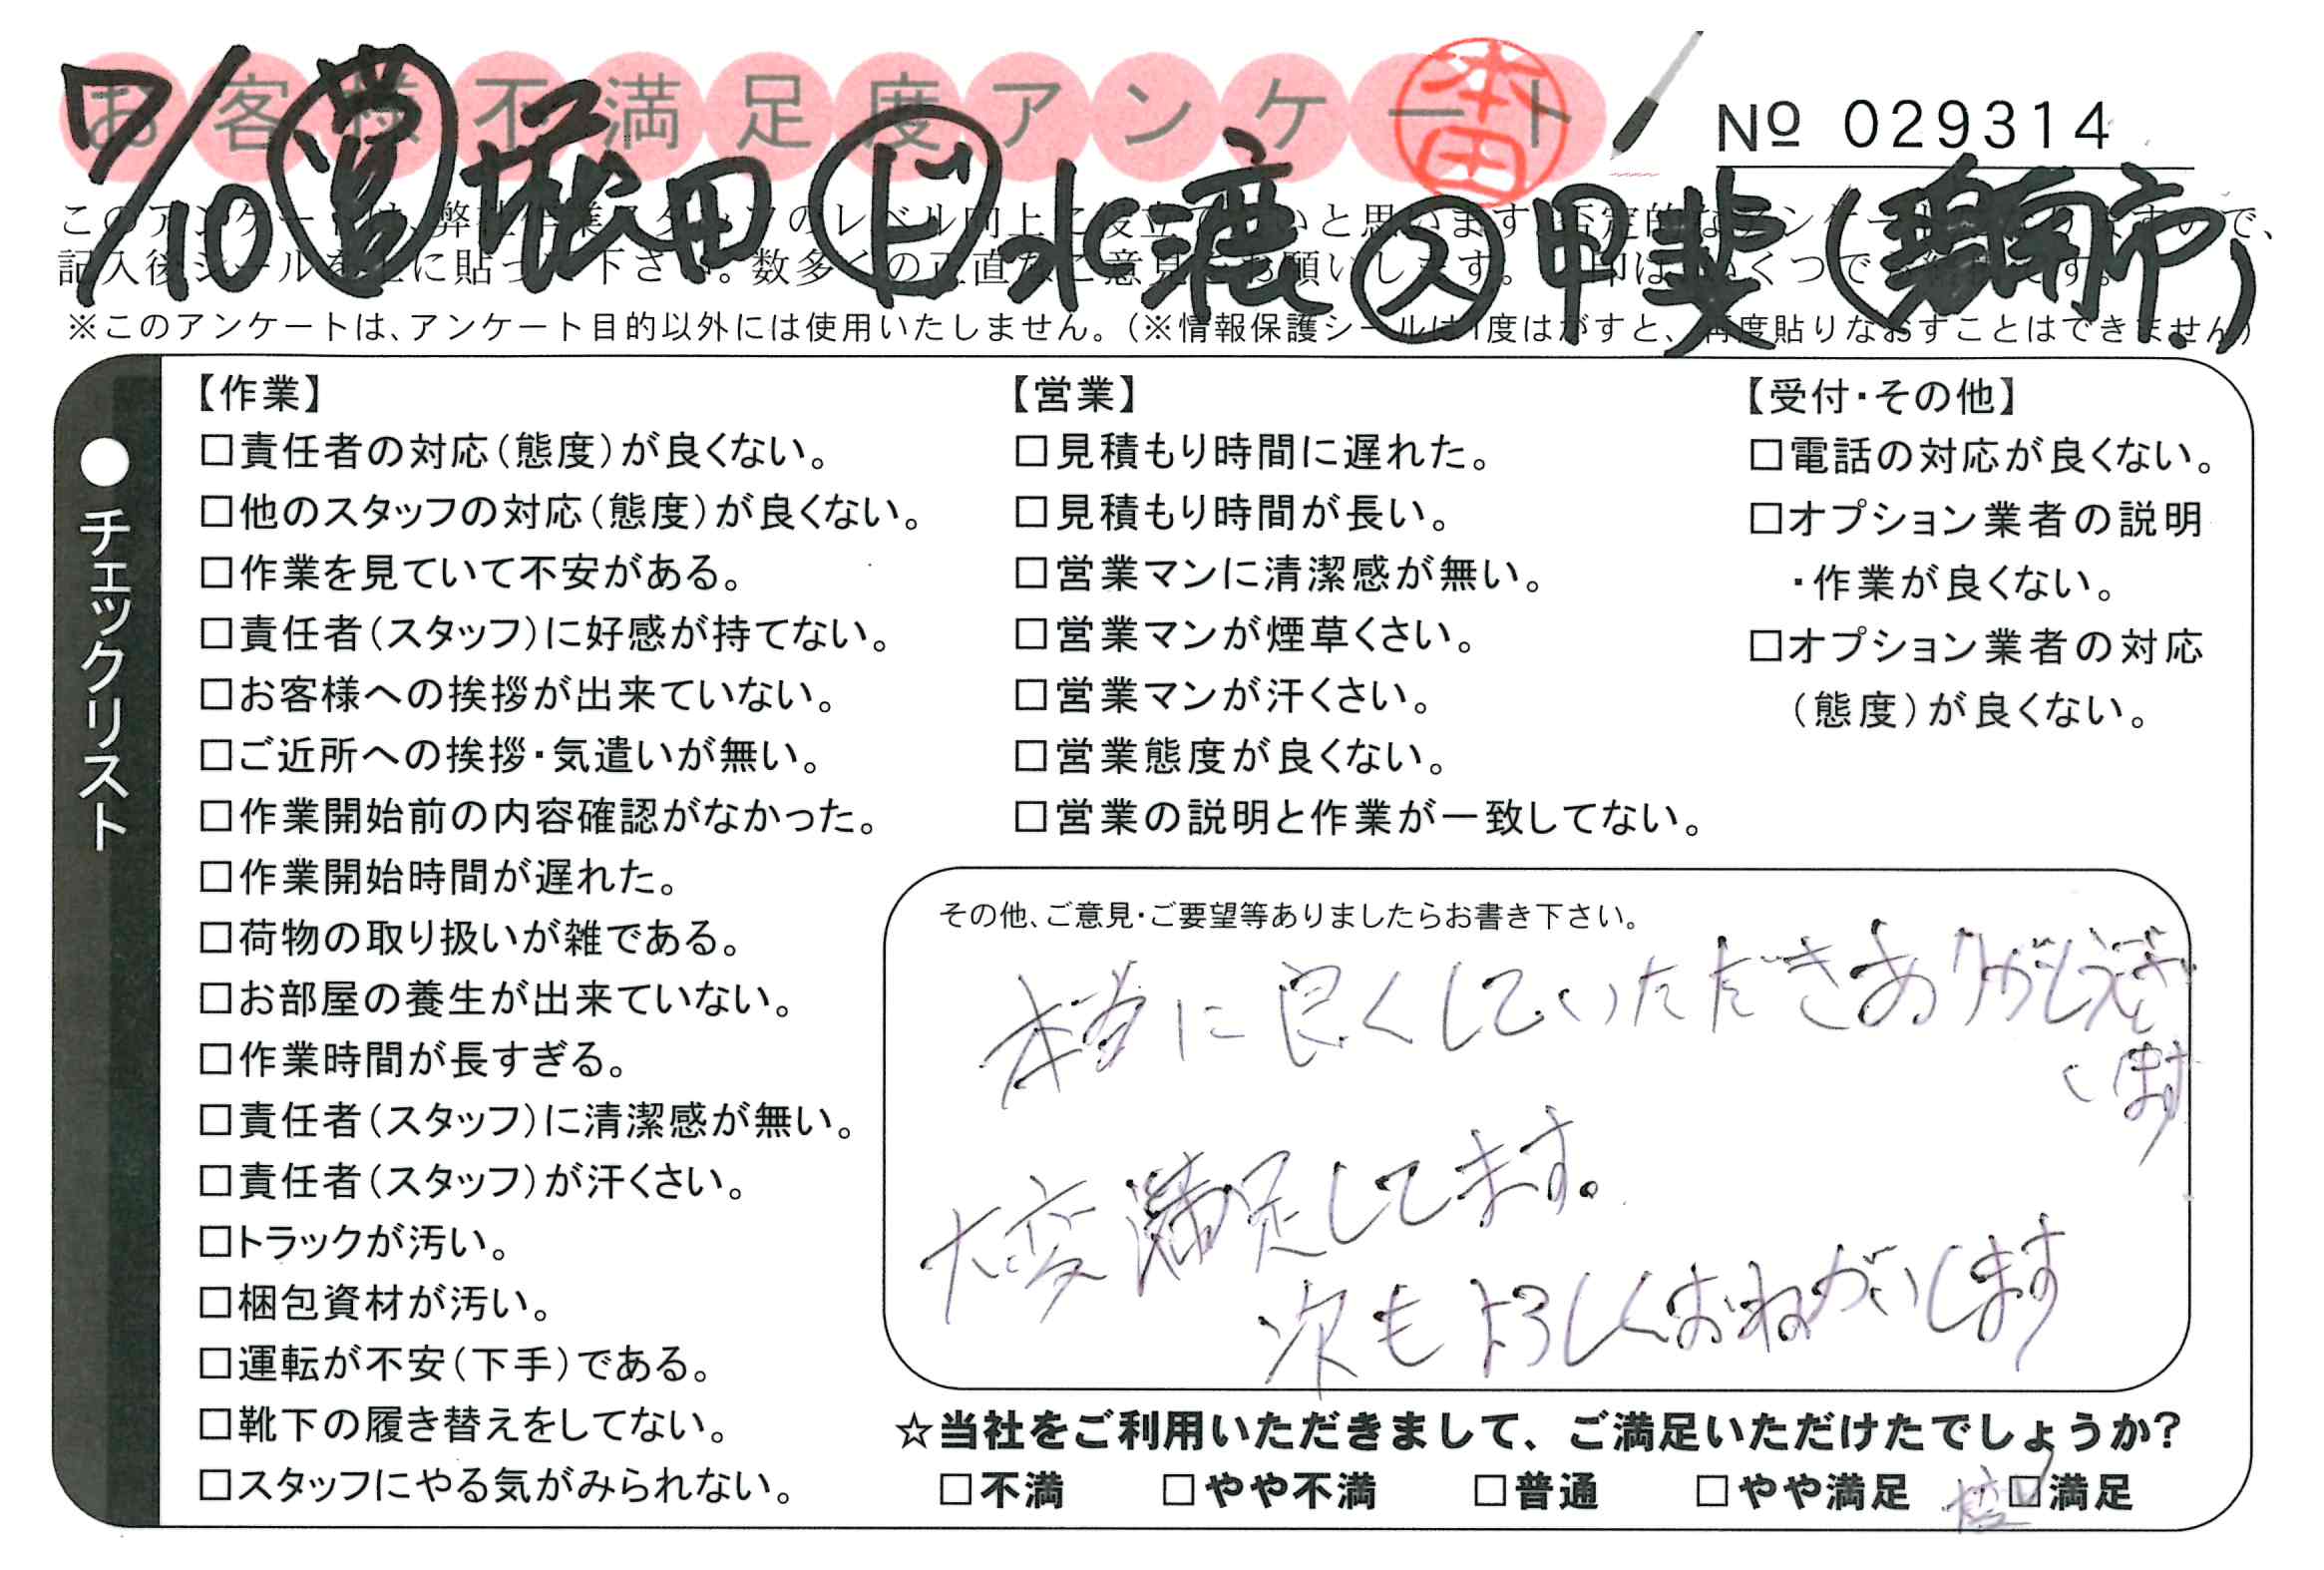 お客様不満足度アンケート
本田
№ 029314
7/10 営 堀田 ド 水漉 ス 甲斐 (碧南市)
※このアンケートは、アンケート目的以外には使用いたしません。(※情報保護シールは1度はがすと、再度貼りなおすことはできません)
●チェックリスト
【作業】
□責任者の対応(態度)が良くない。
□他のスタッフの対応(態度)が良くない。
□作業を見ていて不安がある。
□責任者(スタッフ)に好感が持てない。
□お客様への挨拶が出来ていない。
□ご近所への挨拶・気遣いが無い。
□作業開始前の内容確認がなかった。
□作業開始時間が遅れた。
□荷物の取り扱いが雑である。
□お部屋の養生が出来ていない。
□作業時間が長すぎる。
□責任者(スタッフ)に清潔感が無い。
□責任者(スタッフ)が汗くさい。
□トラックが汚い。
□梱包資材が汚い。
□運転が不安(下手)である。
□靴下の履き替えをしてない。
□スタッフにやる気がみられない。
【営業】
□見積もり時間に遅れた。
□見積もり時間が長い。
□営業マンに清潔感が無い。
□営業マンが煙草くさい。
□営業マンが汗くさい。
□営業態度が良くない。
□営業の説明と作業が一致してない。
【受付・その他】
□電話の対応が良くない。
□オプション業者の説明
・作業が良くない。
□オプション業者の対応
(態度)が良くない。
その他、ご意見・ご要望等ありましたらお書き下さい。
本当に良くしていただきありがとうござ
います
大変満足してます。
次もよろしくおねがいします
☆当社をご利用いただきまして、ご満足いただけたでしょうか?
□不満 □やや不満 □普通 □やや満足 □満足